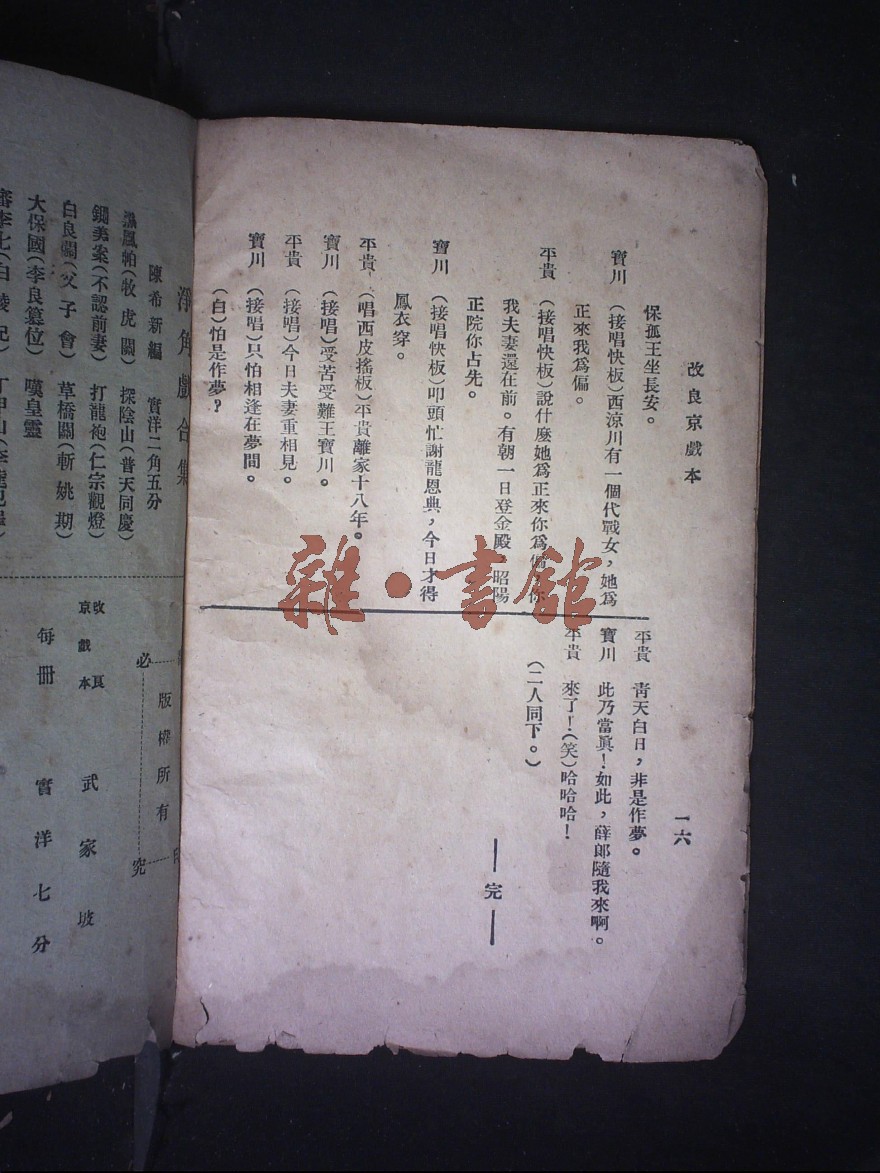 改良京戲本
一六
保孤王坐長安。
寶川　(接唱快板)西涼川有一個代戰女，她爲
正來我爲偏。
平貴　(接唱快板)說什麼她爲正來你爲偏，你
我夫妻還在前。有朝一日登金殿，昭陽
正院你占先。
寶川　(接唱快板)叩頭忙謝龍恩典，今日才得
鳳衣穿。
平貴　(唱西皮搖板)平貴離家十八年。
寶川　(接唱)受苦受難王寶川。
平貴　(接唱)今日夫妻重相見。
寶川　(接唱)只怕相逢在夢間。
(白)怕是作夢？
平貴　靑天白日，非是作夢。
寶川　此乃當眞！如此，薛郎隨我來啊。
平貴　來了！(笑)哈哈哈！
(二人同下。)
—完—
雜·書館
淨角戲合集
陳希新編　實洋二角五分
鳳帕(牧虎關)　探陰山(普天同慶)
鍘美案(不認前妻)　打龍袍(仁宗觀燈)
白良關(父子會)　草橋關(斬姚期)
大保國(李良篡位)　嘆皇靈
審李七(白綾記)
版權所有
必究
改良京戲本　武家坡
每冊　實洋七分